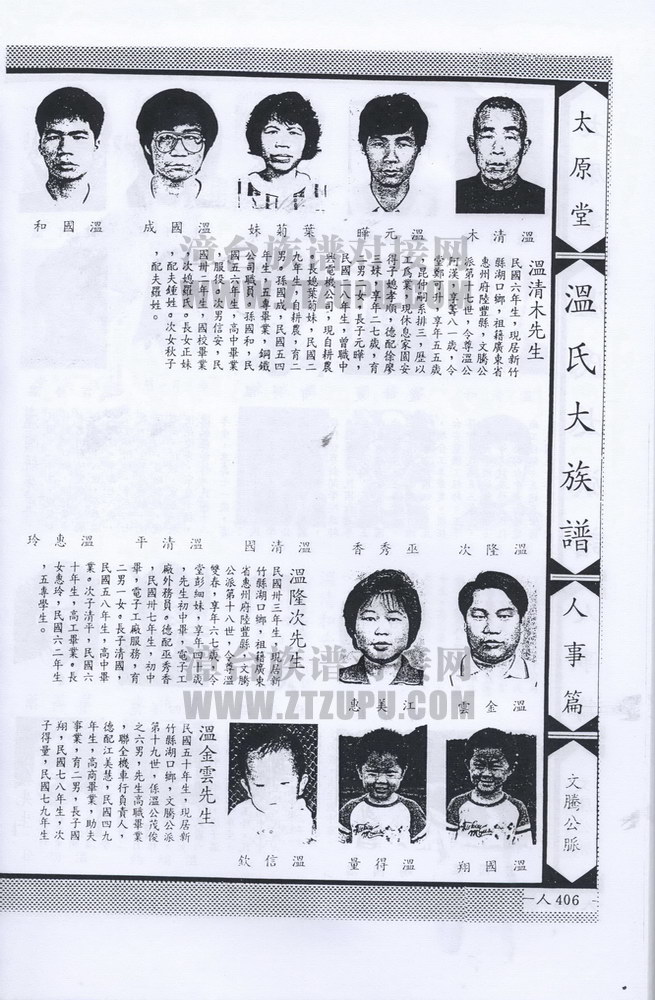 太原堂
溫氏大族譜
人事篇
文騰公脈
人 406
溫清木
溫元暉
葉菊妹
溫國成
溫國和
溫清木先生
民國六年生，現居新竹
縣湖口鄉，祖籍廣東省
惠州府陸豐縣，文騰公
派第十七世，令尊溫公
阿漢，享壽八一歲，令
堂鄭可升，享年五五歲
，昆仲嗣系排三，歷以
工為業，現休息家園安
得子媳孝順，德配徐廖
二妹，享年二七歲，育
二男一女。長子元暉，
民國二八年生，曾職中
興電機公司，現自耕農
。長媳葉菊妹，民國二
九年生，自耕農，育二
男。孫國成，民國五四
年生，五專畢業，鋼鐵
公司職員。孫國和，民
國五六年生，高中畢業
，服役。次男信安，民
國卅二年生，國校畢業
，次媳羅氏。長女正妹
，配鍾姓。次女秋子
，配夫羅姓。
溫隆次
巫秀香
溫清國
溫清平
溫惠玲
溫隆次先生
民國卅三年生，現居新
竹縣湖口鄉，祖籍廣東
省惠州府陸豐縣，文騰
公派第十八世，令尊溫
雙春，享年六七歲，令
堂彭細妹，享年四十歲
，先生初中畢，電子工
廠外務員。德配巫秀香
，民國卅七年生，初中
畢，電子工廠服務，育
二男一女。長子清國，
民國五八年生，高中畢
業。次子清平，民國六
十年生，高工畢業。長
女惠玲，民國六二年生
，五專學生。
溫金雲
江美惠
溫國翔
溫得量
溫信欽
溫金雲先生
民國五十年生，現居新
竹縣湖口鄉，文騰公派
第十九世，係溫公茂俊
之六男，先生高職畢業
，聯全機車行負責人，
德配江美慧，民國四九
年生，高商畢業，助夫
事業，育二男，長子國
翔，民國七八年生，次
子得量，民國七九年生
漳台族谱对接网
WWW.ZTZUPU.COM
漳台族谱对接网
WWW.ZTZUPU.COM